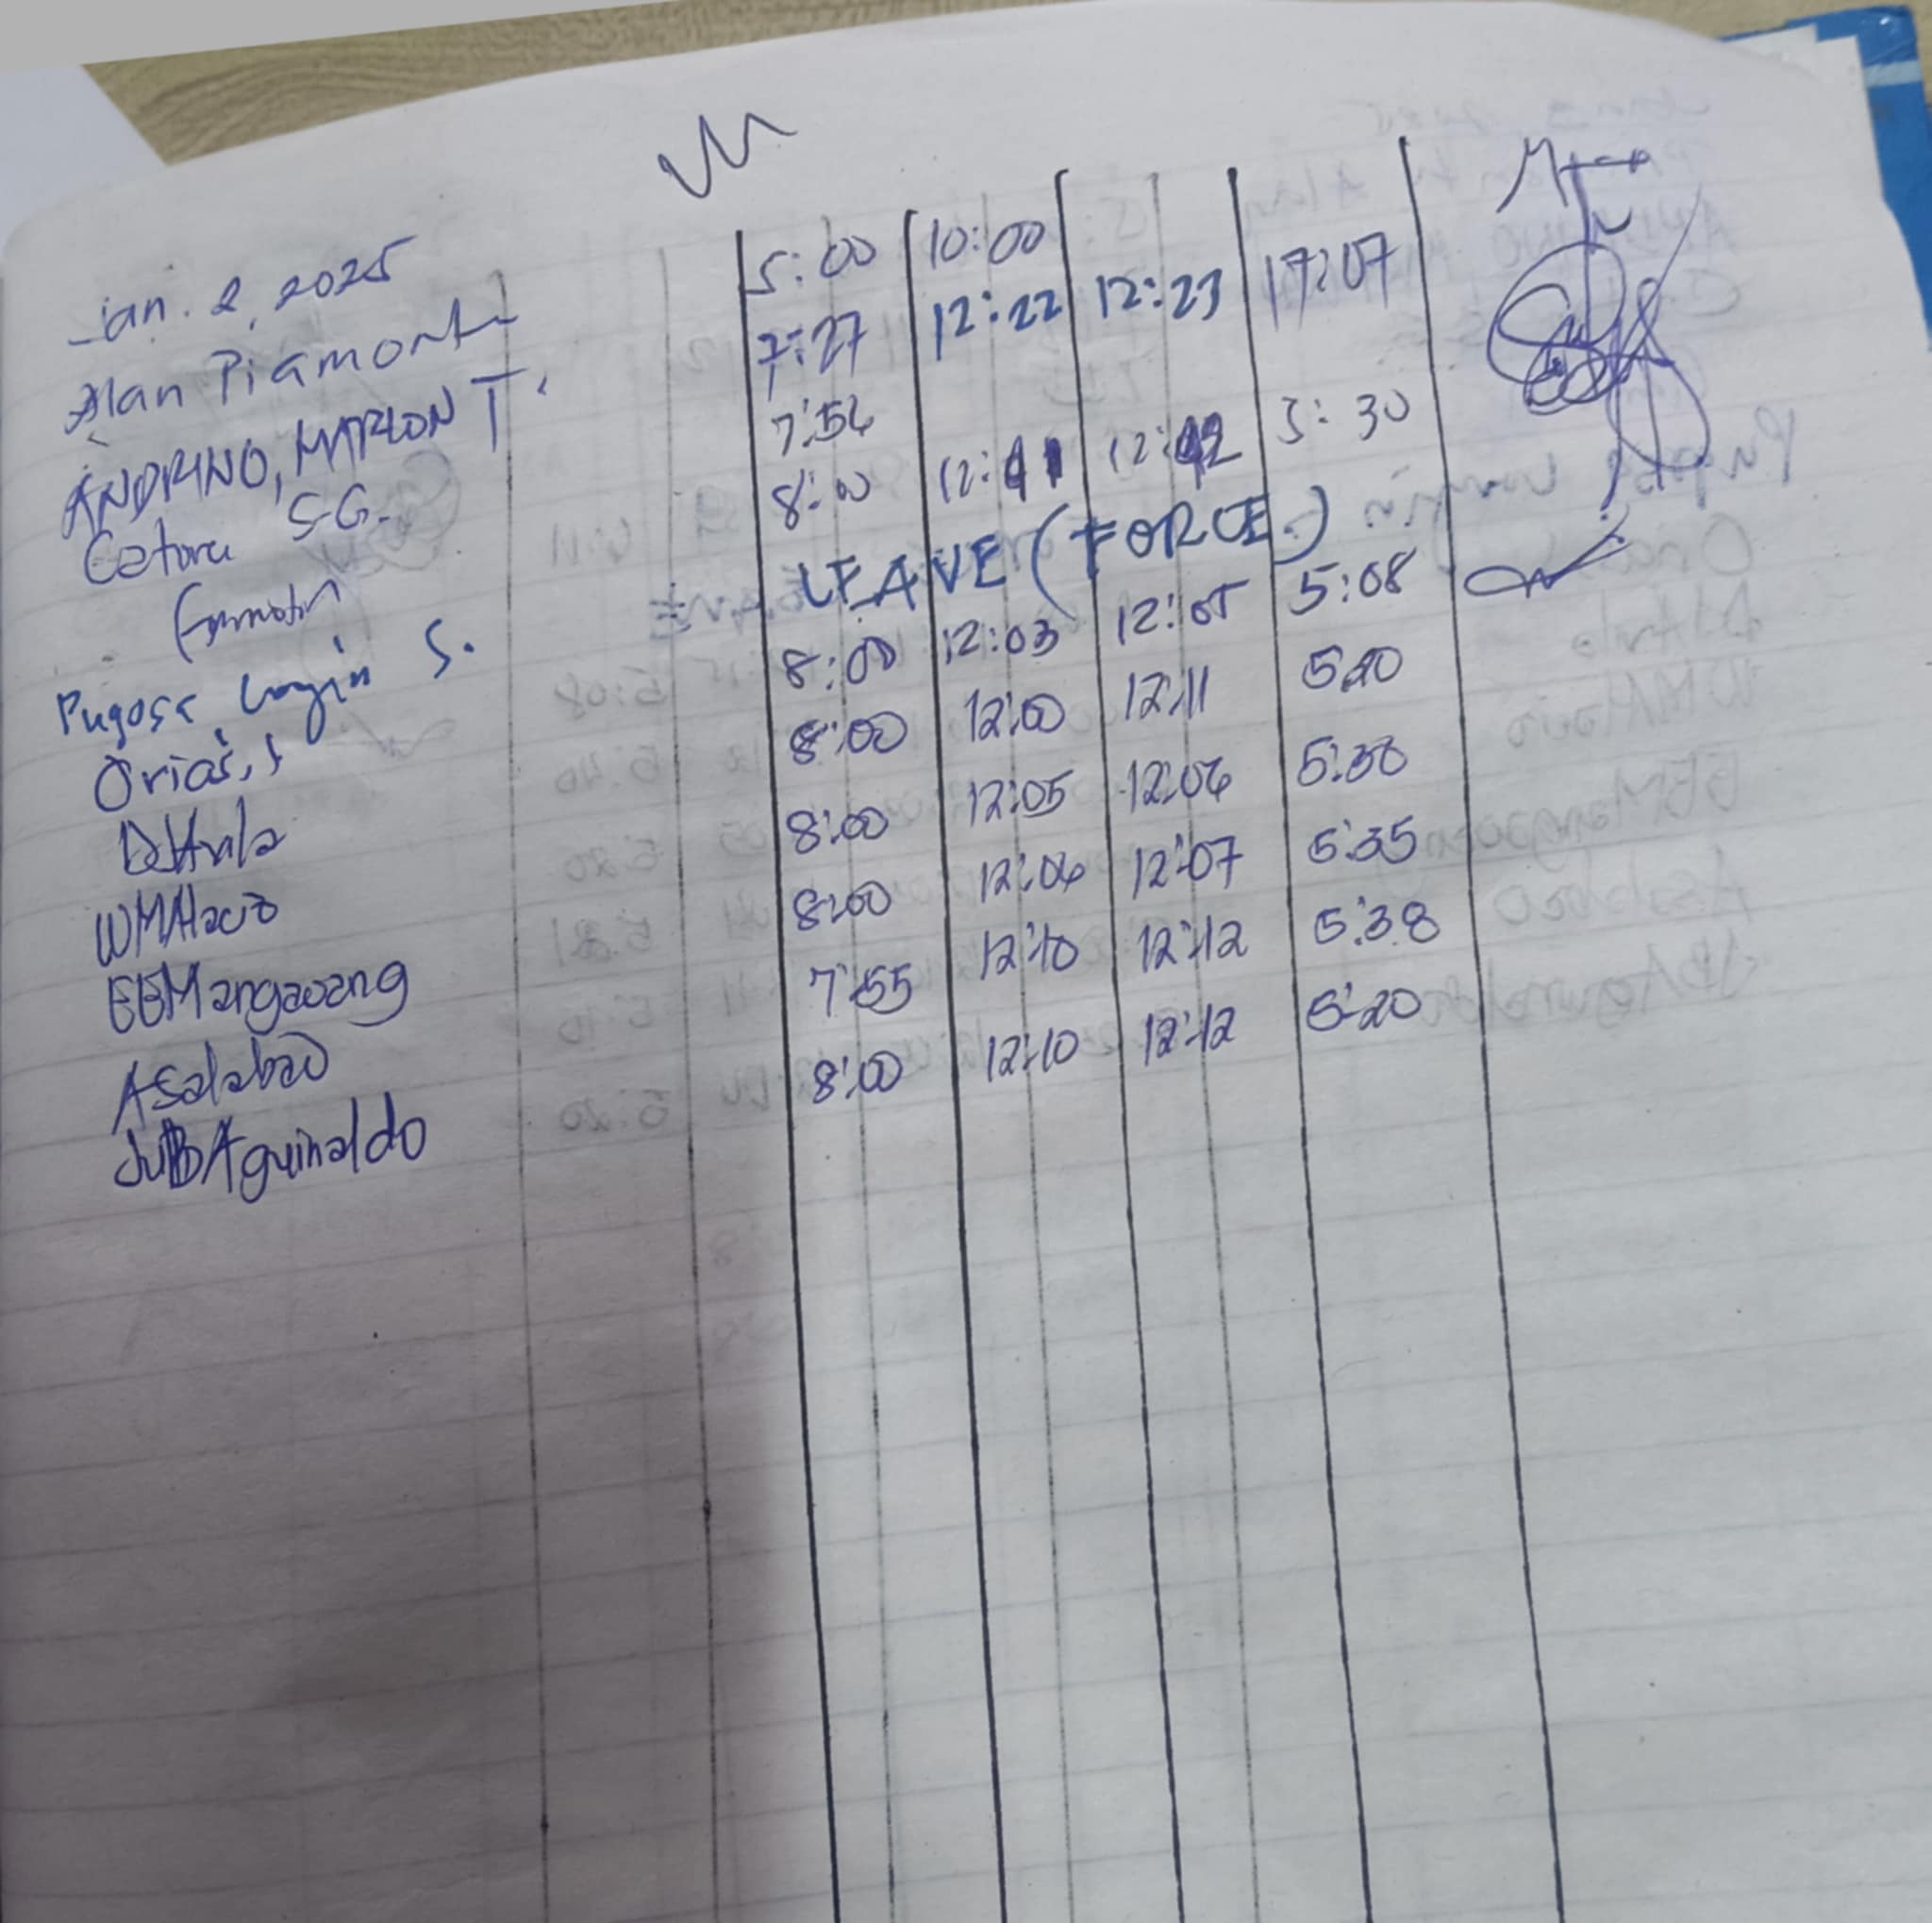 Jan. 2, 2025
Alan Piamonte 5:00 10:00
ANDRINO, MARLON T. 7:27 12:22 12:23 17:07
S.G. 7:56
8:00 12:41 12:42 5:30
S. LEAVE (FORCE)
Orias, 8:00 12:03 12:05 5:08
8:00 12:00 12:11 5:20
8:00 12:05 12:06 5:30
EEMangaoang 8:00 12:06 12:07 5:35
Asalabao 7:55 12:10 12:12 5:38
Aguinaldo 8:00 12:10 12:12 5:20